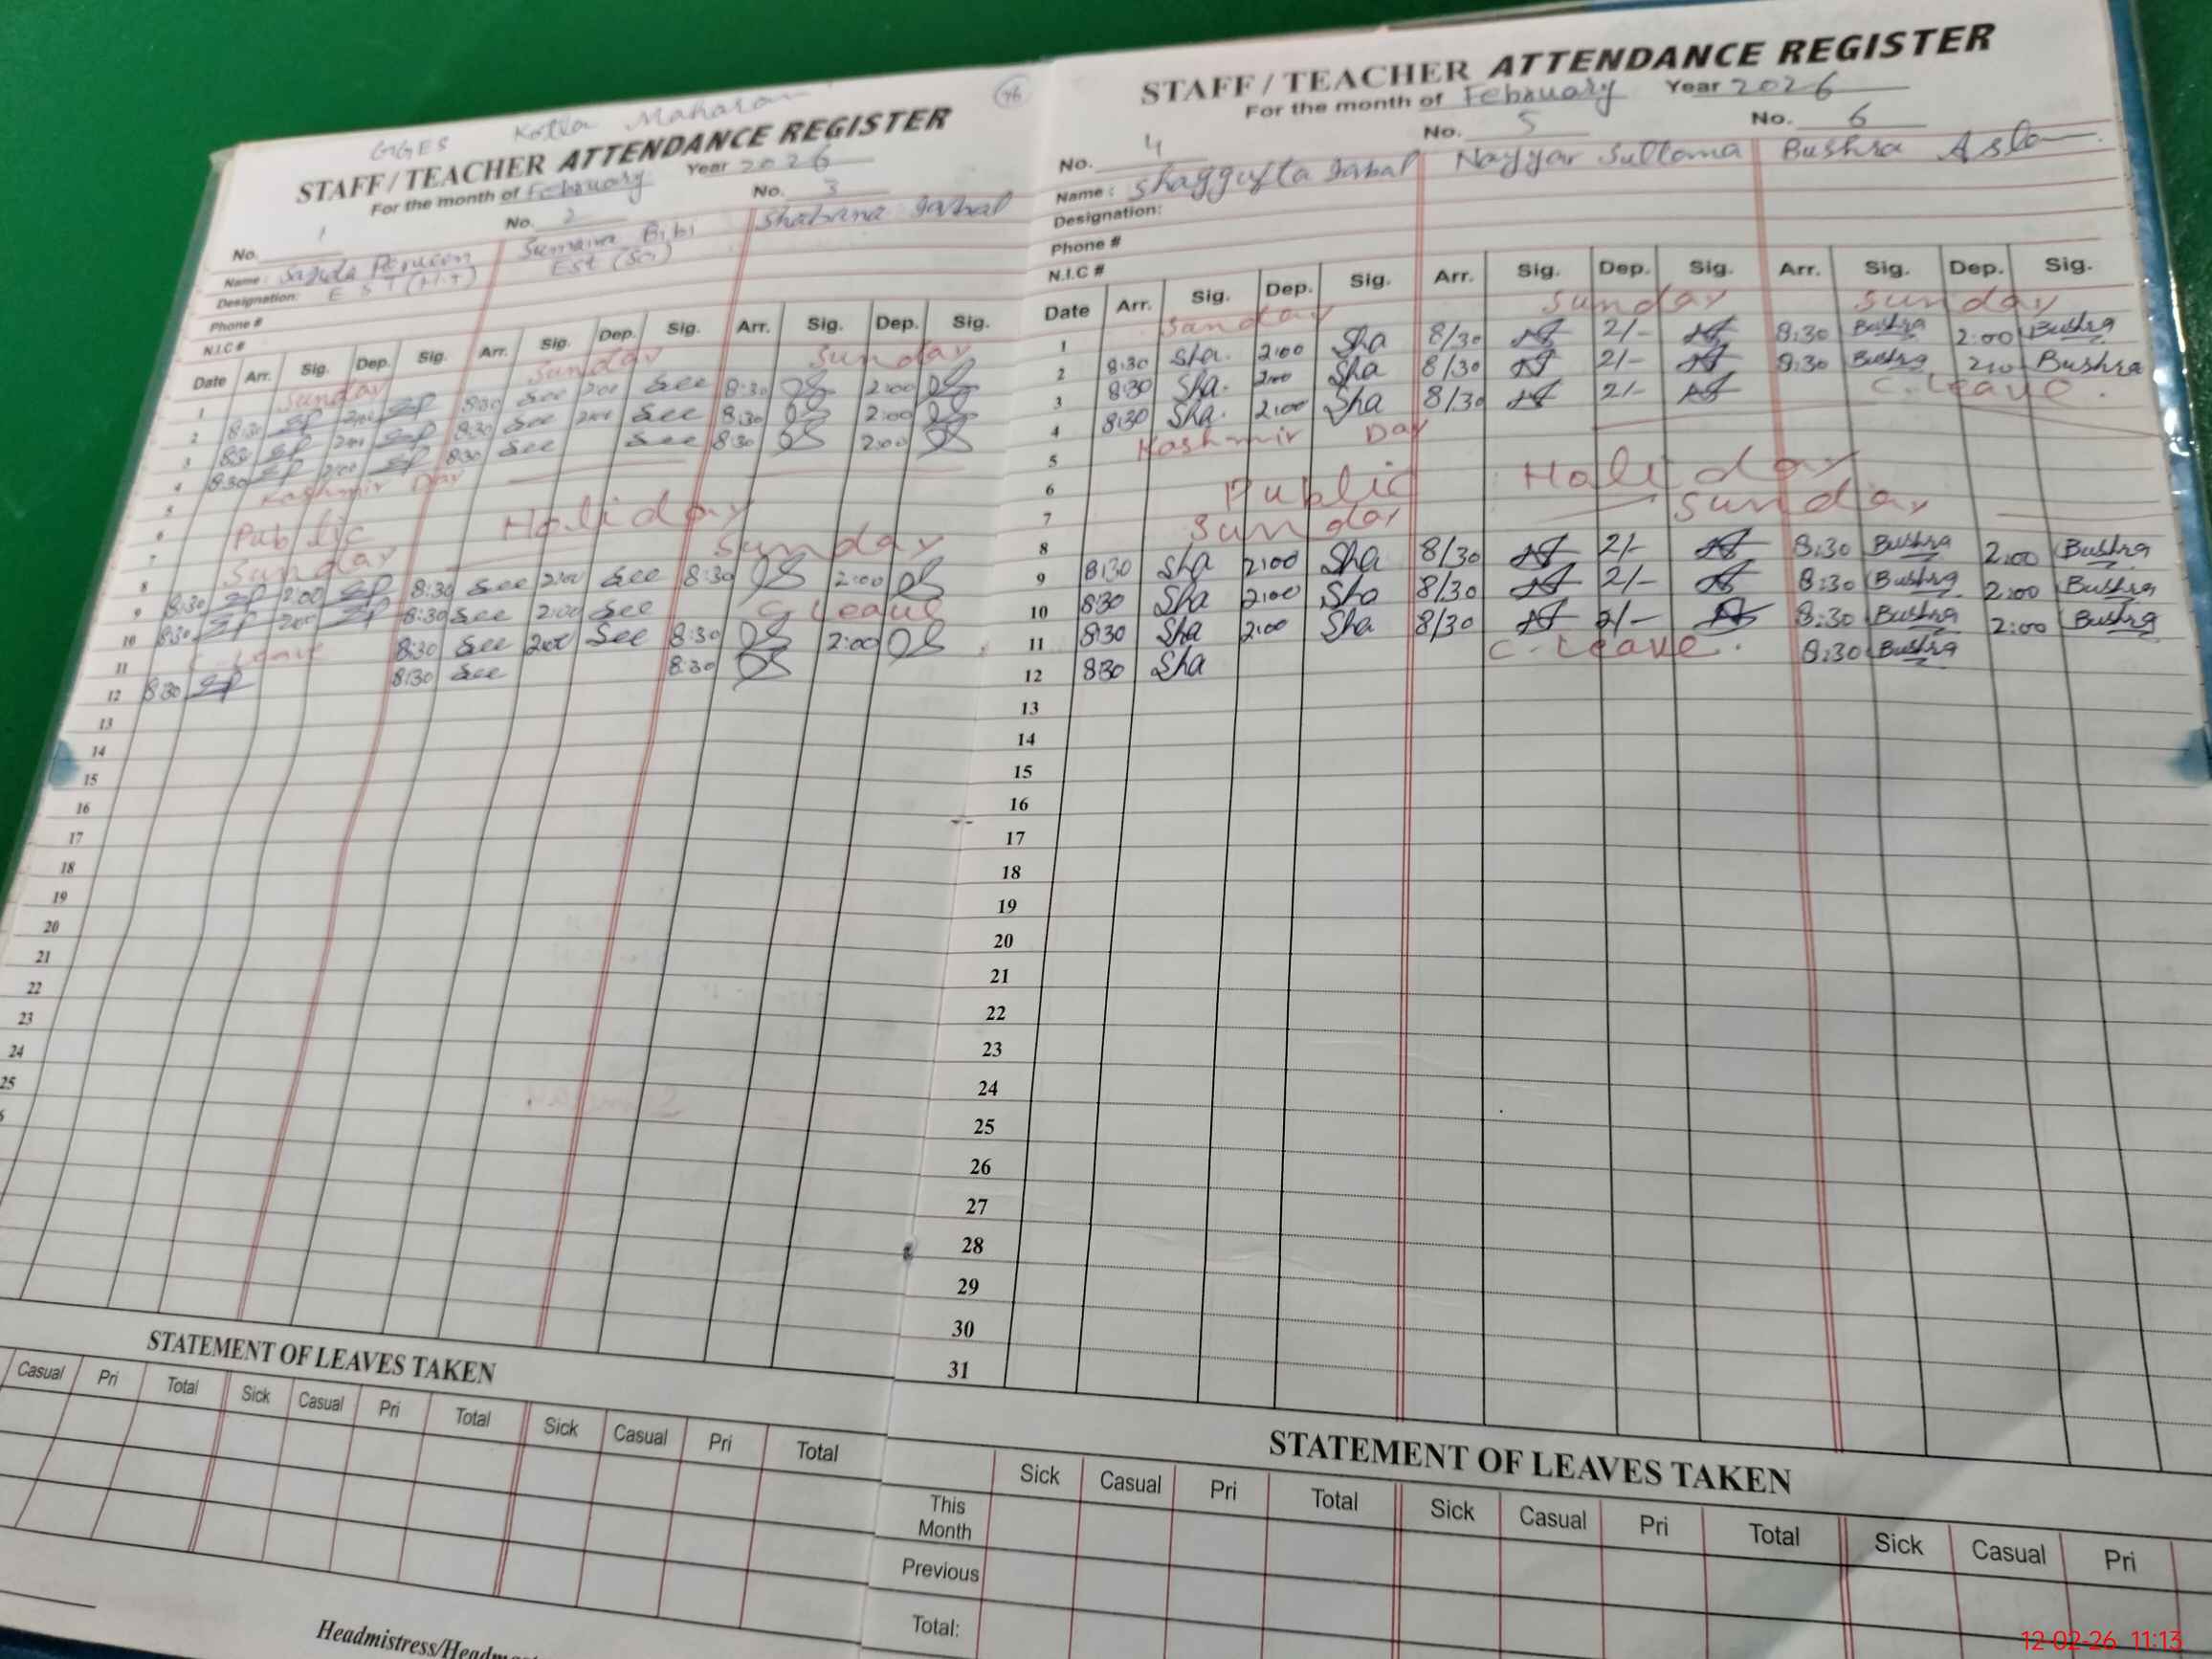 GGES Kotla Maharan
STAFF / TEACHER ATTENDANCE REGISTER
For the month of February Year 2026
No. 1 No. 2 No. 3
Name: Sajida Perveen Sumaira Bibi Shabana
Designation: E S T (M.T) Est (Sci)
Phone #
N.I.C #
Date Arr. Sig. Dep. Sig. Arr. Sig. Dep. Sig. Arr. Sig. Dep. Sig.
1 Sunday Sunday Sunday
2 8:30 2:00 8:30 See 2:00 See 8:30 2:00
3 8:30 2:00 8:30 See 2:00 See 8:30 2:00
4 8:30 2:00 8:30 See See 8:30 2:00
5 Kashmir Day
6 Public Holiday
7
8 Sunday Sunday
9 8:30 2:00 8:30 See 2:00 See 8:30 2:00
10 8:30 2:00 8:30 See 2:00 See C Leave
11 C. Leave 8:30 See 2:00 See 8:30 2:00
12 8:30 8:30 See 8:30
13
14
15
16
17
18
19
20
21
22
23
24
25
STATEMENT OF LEAVES TAKEN
Casual Pri Total Sick Casual Pri Total Sick Casual Pri Total
Headmistress/Headm
46
STAFF / TEACHER ATTENDANCE REGISTER
For the month of February Year 2026
No. 4 No. 5 No. 6
Name: Shaggufta Iqbal Nayyar Sultana Bushra Aslam
Designation:
Phone #
N.I.C #
Date Arr. Sig. Dep. Sig. Arr. Sig. Dep. Sig. Arr. Sig. Dep. Sig.
1 Sunday Sunday Sunday
2 8:30 Sha. 2:00 Sha 8/30 2/- 8:30 Bushra 2:00 Bushra
3 8:30 Sha. 2:00 Sha 8/30 2/- 8:30 Bushra 2:00 Bushra
4 8:30 Sha. 2:00 Sha 8/30 2/- C. Leave.
5 Kashmir Day
6 Public Holiday
7
8 Sunday Sunday
9 8:30 Sha 2:00 Sha 8/30 2/- 8:30 Bushra 2:00 Bushra
10 8:30 Sha 2:00 Sha 8/30 2/- 8:30 Bushra 2:00 Bushra
11 8:30 Sha 2:00 Sha 8/30 2/- 8:30 Bushra 2:00 Bushra
12 8:30 Sha C. Leave. 8:30 Bushra
13
14
15
16
17
18
19
20
21
22
23
24
25
26
27
28
29
30
31
STATEMENT OF LEAVES TAKEN
Sick Casual Pri Total Sick Casual Pri Total Sick Casual Pri
This Month
Previous
Total:
12-02-26 11:13